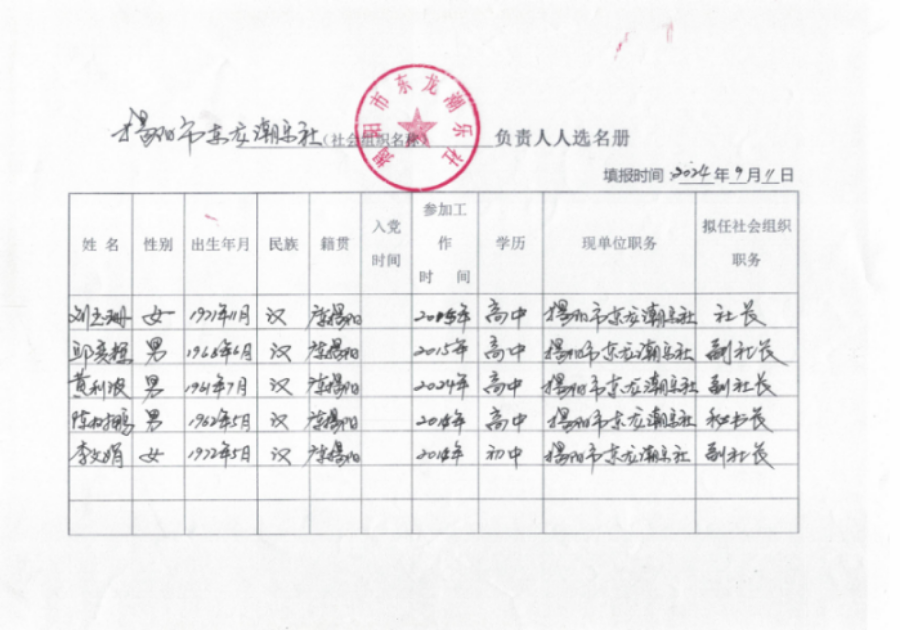 揭阳市东龙潮乐社
揭阳市东龙潮乐社(社会组织名称) 负责人人选名册
填报时间 2024年9月11日
姓名 性别 出生年月 民族 籍贯 入党时间 参加工作时间 学历 现单位职务 拟任社会组织职务
刘 女 1971年11月 汉 广东揭阳 年 高中 揭阳市东龙潮乐社 社长
邱 男 1968年6月 汉 广东揭阳 2015年 高中 揭阳市东龙潮乐社 副社长
黄利波 男 1961年7月 汉 广东揭阳 2024年 高中 揭阳市东龙潮乐社 副社长
陈 鹏 男 1962年5月 汉 广东揭阳 2014年 高中 揭阳市东龙潮乐社 秘书长
李文娟 女 1972年5月 汉 广东揭阳 2014年 初中 揭阳市东龙潮乐社 副社长